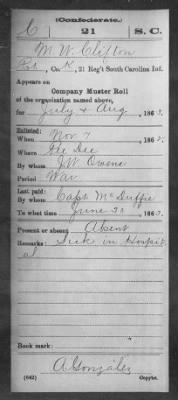 (Confederate.)
C 21 S.C.
M. W. Clifton
Pvt, Co. K, 21 Reg't South Carolina Inf.
Appears on
Company Muster Roll
of the organization named above,
for July & Aug, 1863.
Enlisted:
When Nov 7, 186
Where Pee Dee
By whom J. W. Owens
Period War
Last paid:
By whom Capt McDuffie
To what time June 30, 1863.
Present or absent Absent
Remarks: Sick in Hospit
al
Book mark:
A Gonzalez
(642) Copyist.